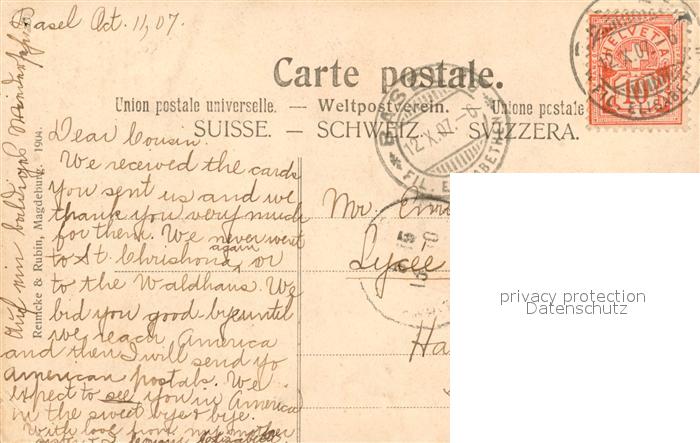 Basel Oct. 11, 07.
Carte postale.
Union postale universelle. — Weltpostverein. — Unione postale
SUISSE. — SCHWEIZ. — SVIZZERA.
Dear Cousin.
We received the cards
you sent us and we
thank you very much
for them. We never went
again
to St. Chrishona, or
to the Waldhaus. We
bid you good-bye until
we reach America
and then I will send yo
american postals. We
expect to see you in America
in the sweet bye & bye.
With love from my mother
Auf ein baldiges Wiedersehn
Rennicke & Rubin, Magdeburg. 1904.
Mr.
Lycee
Ha
HELVETIA
10
BAS
12.X.07.–6
FIL. ELISABETHEN
12.X.07.
privacy protection
Datenschutz